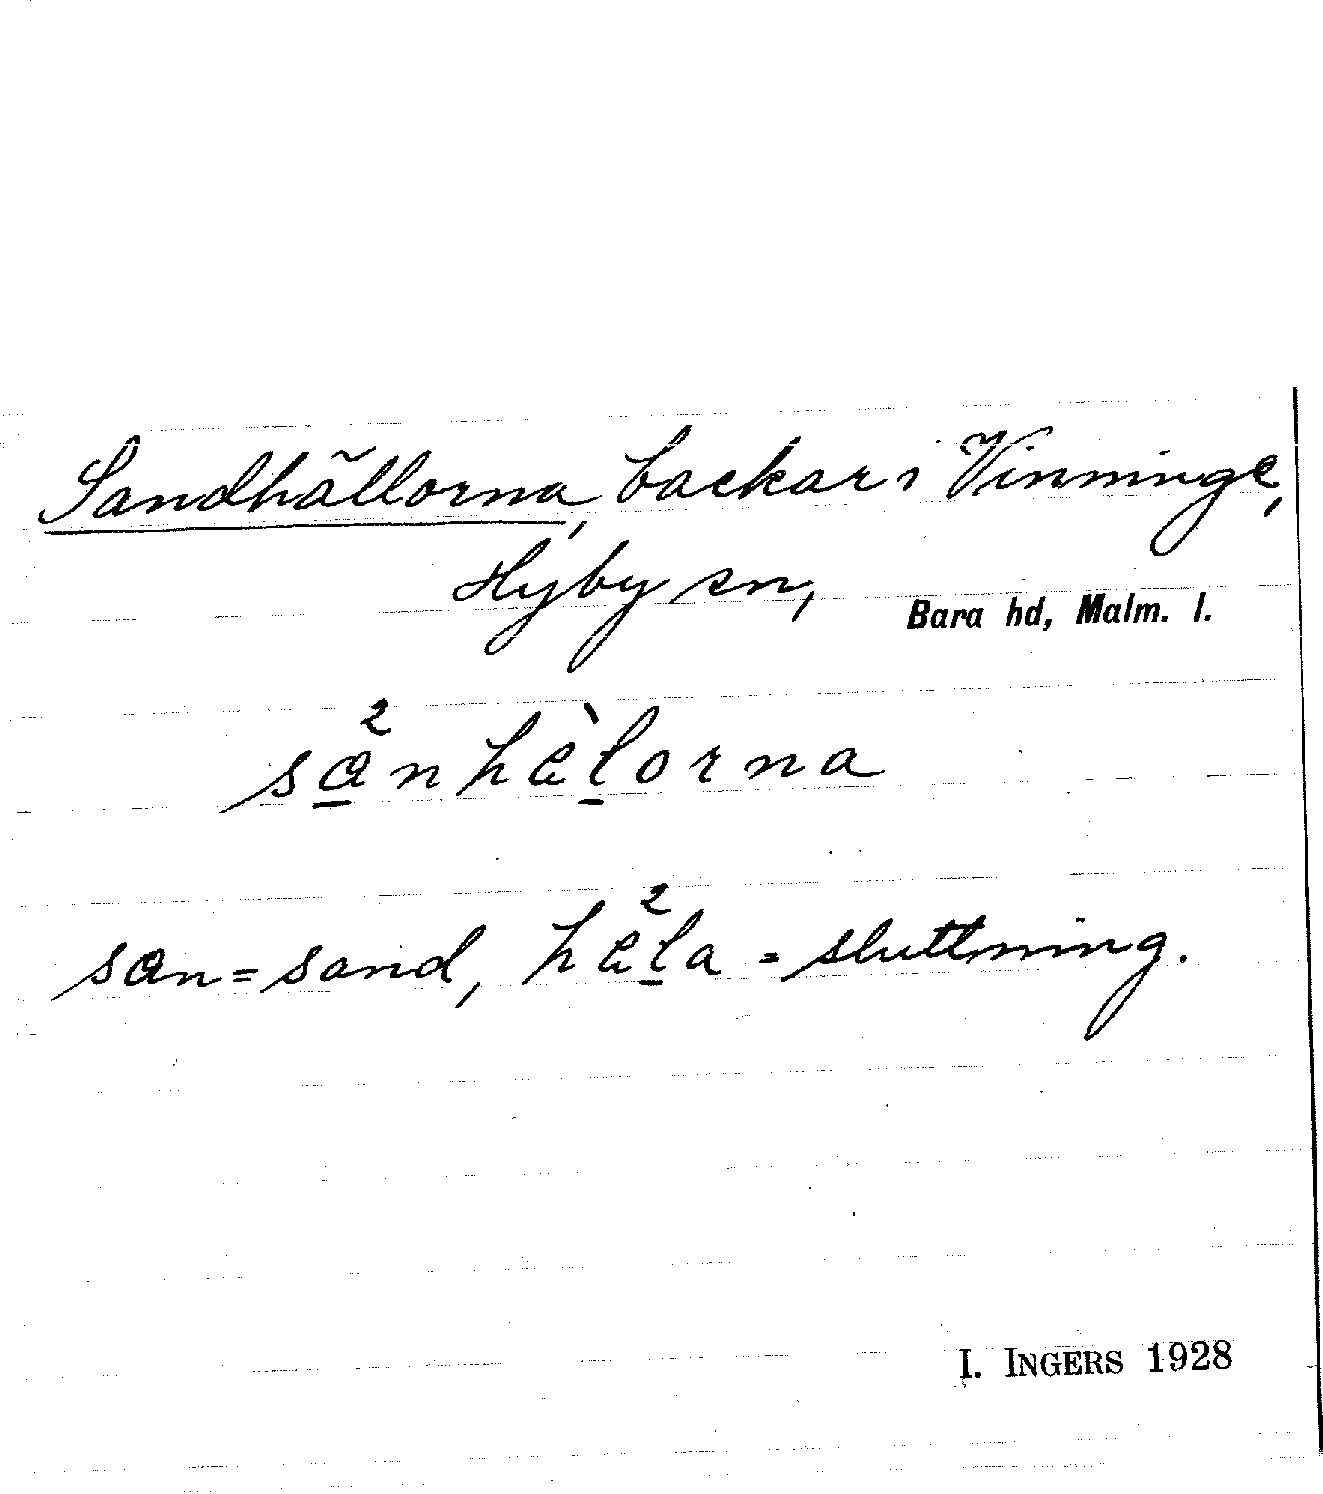 Sandhällorna, backar i Vinninge,
Hyby sn,
Bara hd, Malm. l.
sa̲²nhèl̲orna
san = sand, hel̲²a = sluttning.
I. INGERS 1928